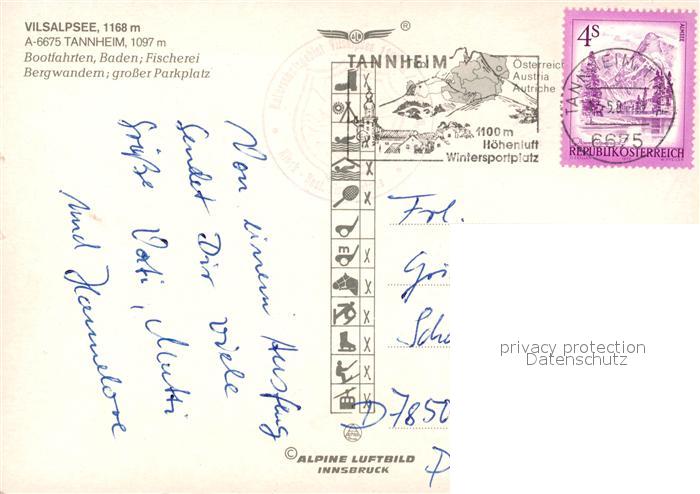 VILSALPSEE, 1168 m
A-6675 TANNHEIM, 1097 m
Bootfahrten, Baden; Fischerei
Bergwandern; großer Parkplatz
ALM
®
TANNHEIM
Österreich
Austria
Autriche
1100 m
Höhenluft
Wintersportplatz
TANNHEIM
6675
4S
ALMSEE
REPUBLIK ÖSTERREICH
Von einem Ausflug
sendet Dir viele
Grüße Vati, Mutti
und Hannelore
Frl.
D 7850
privacy protection
Datenschutz
© ALPINE LUFTBILD
INNSBRUCK